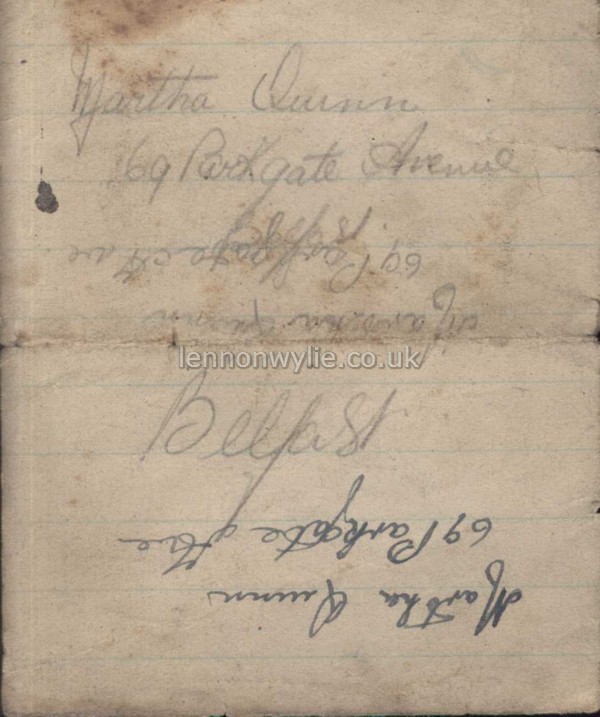 Martha Quinn
69 Parkgate Avenue
69 Parkgate Ave
Martha Quinn
lennonwylie.co.uk
Belfast
69 Parkgate Ave
Martha Quinn